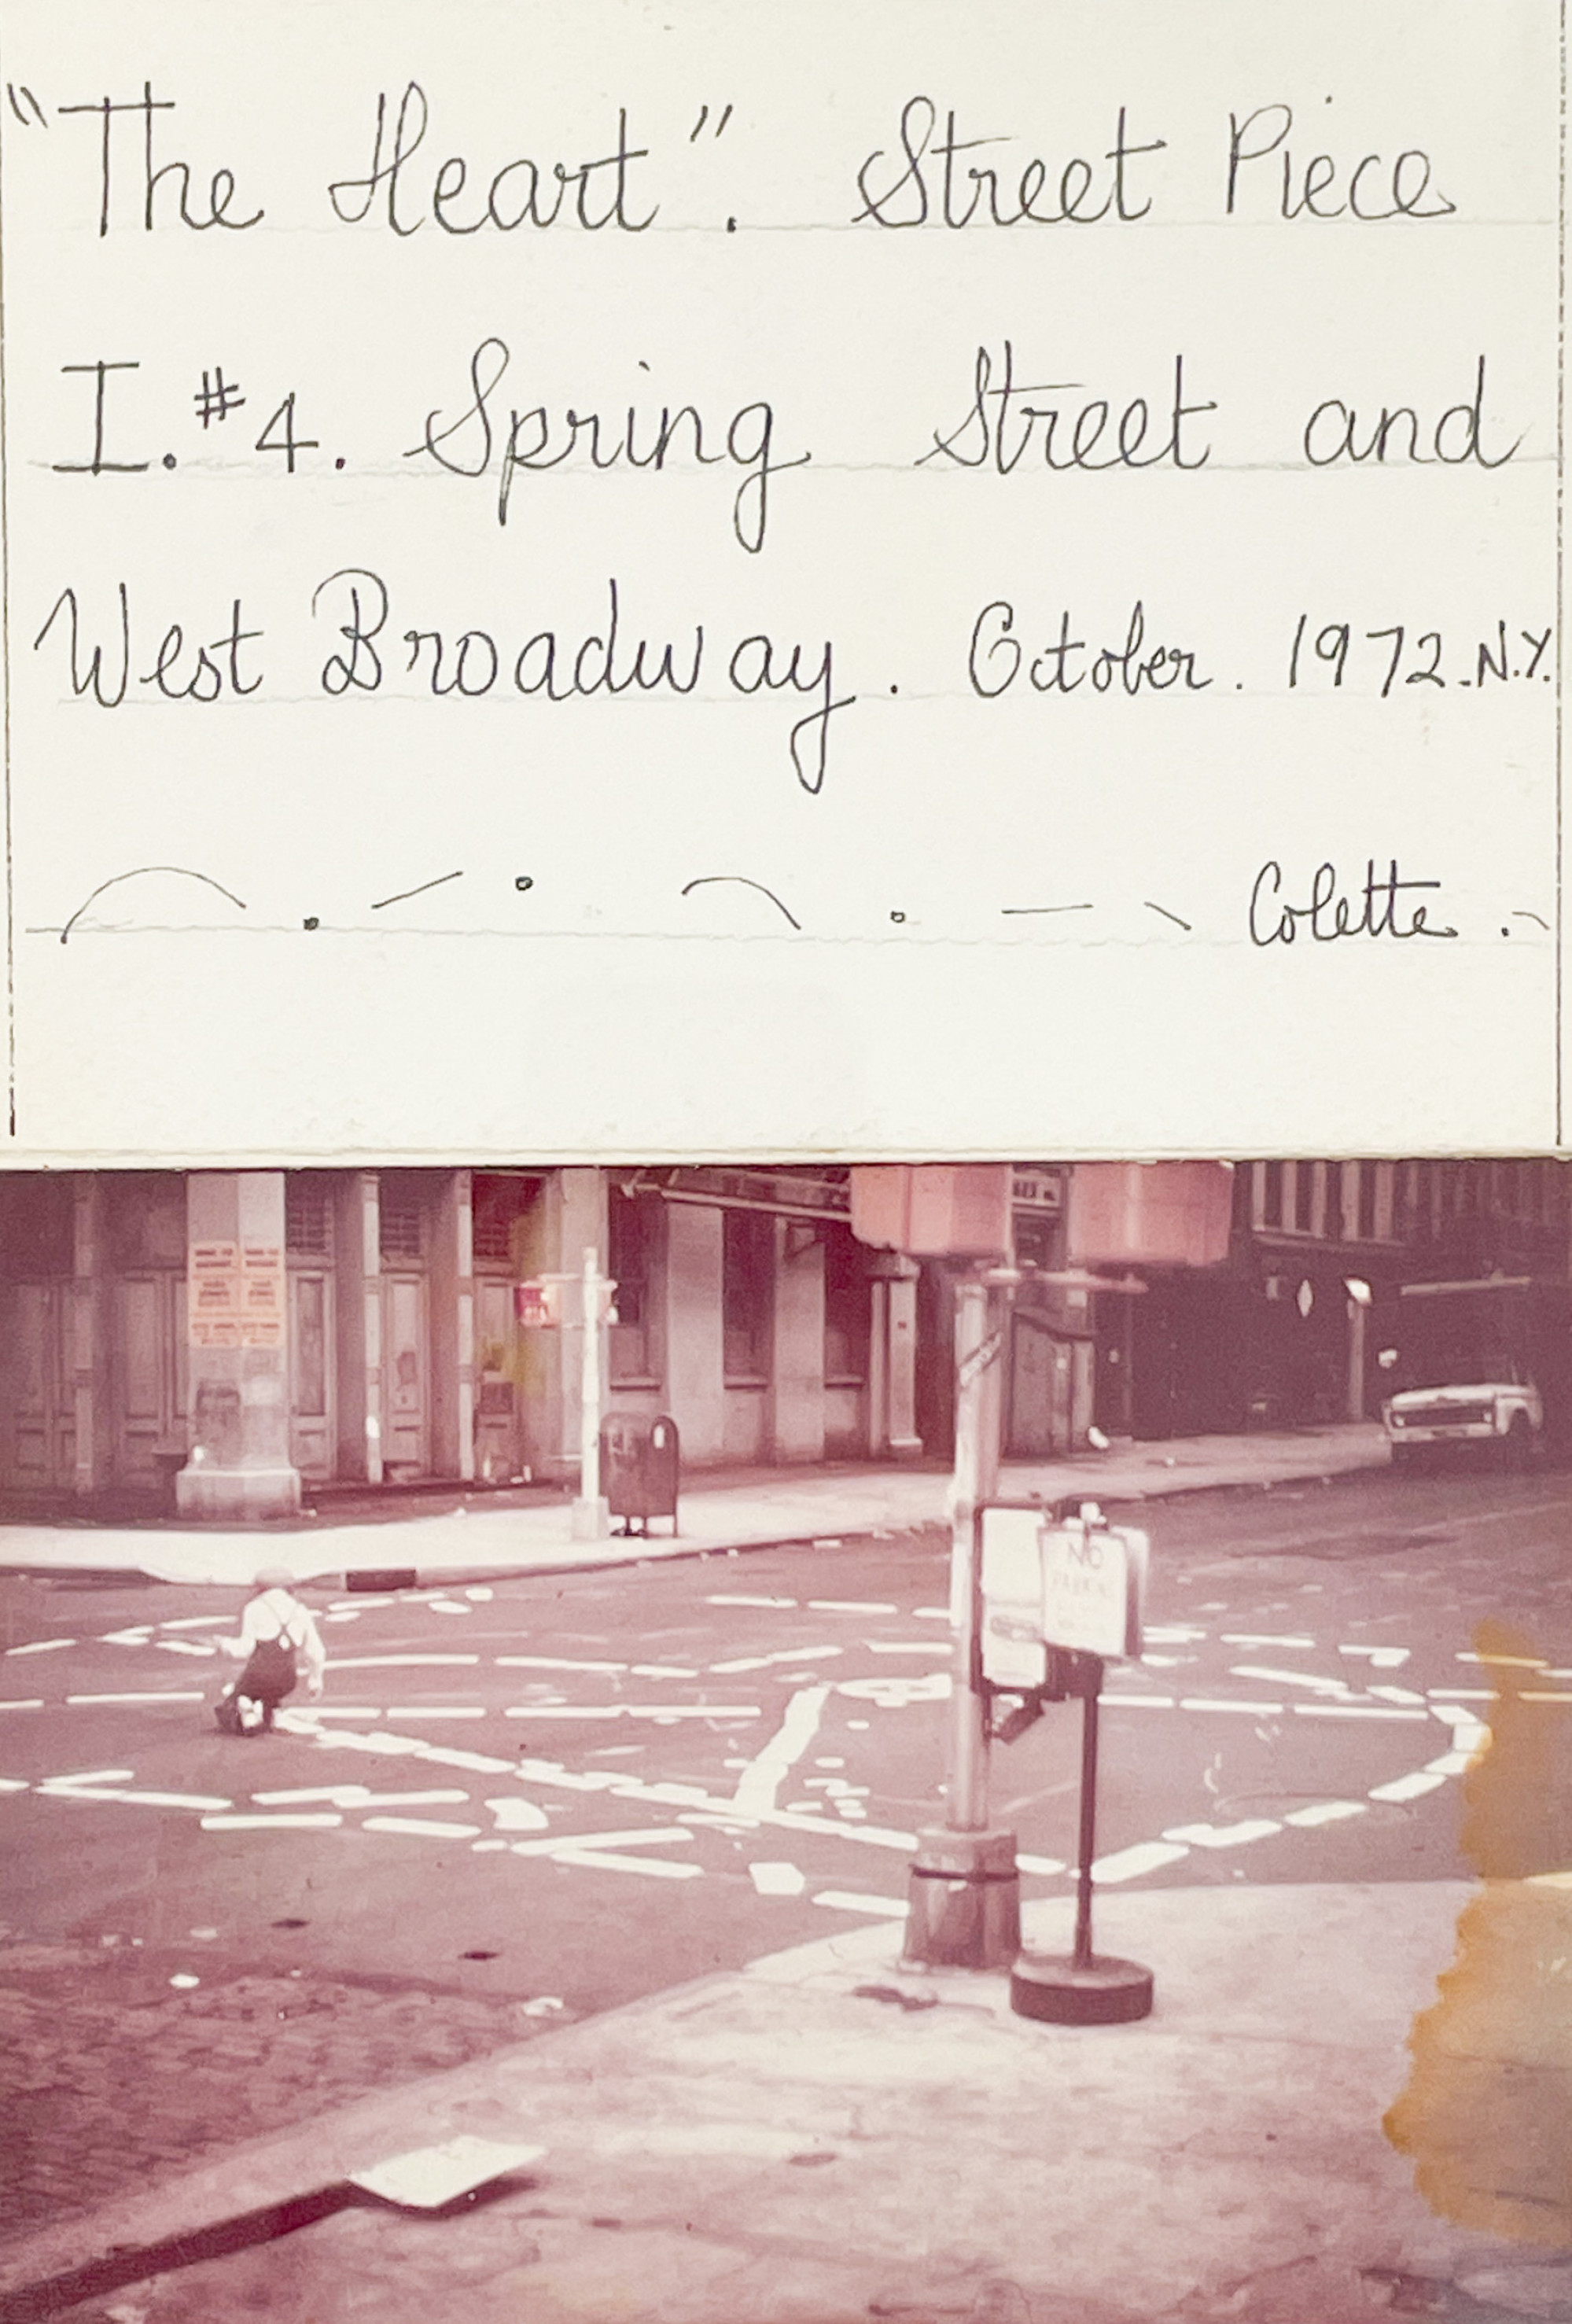 "The Heart". Street Piece
I. #4. Spring Street and
West Broadway. October. 1972. N.Y.
Colette.
NO
PARKING